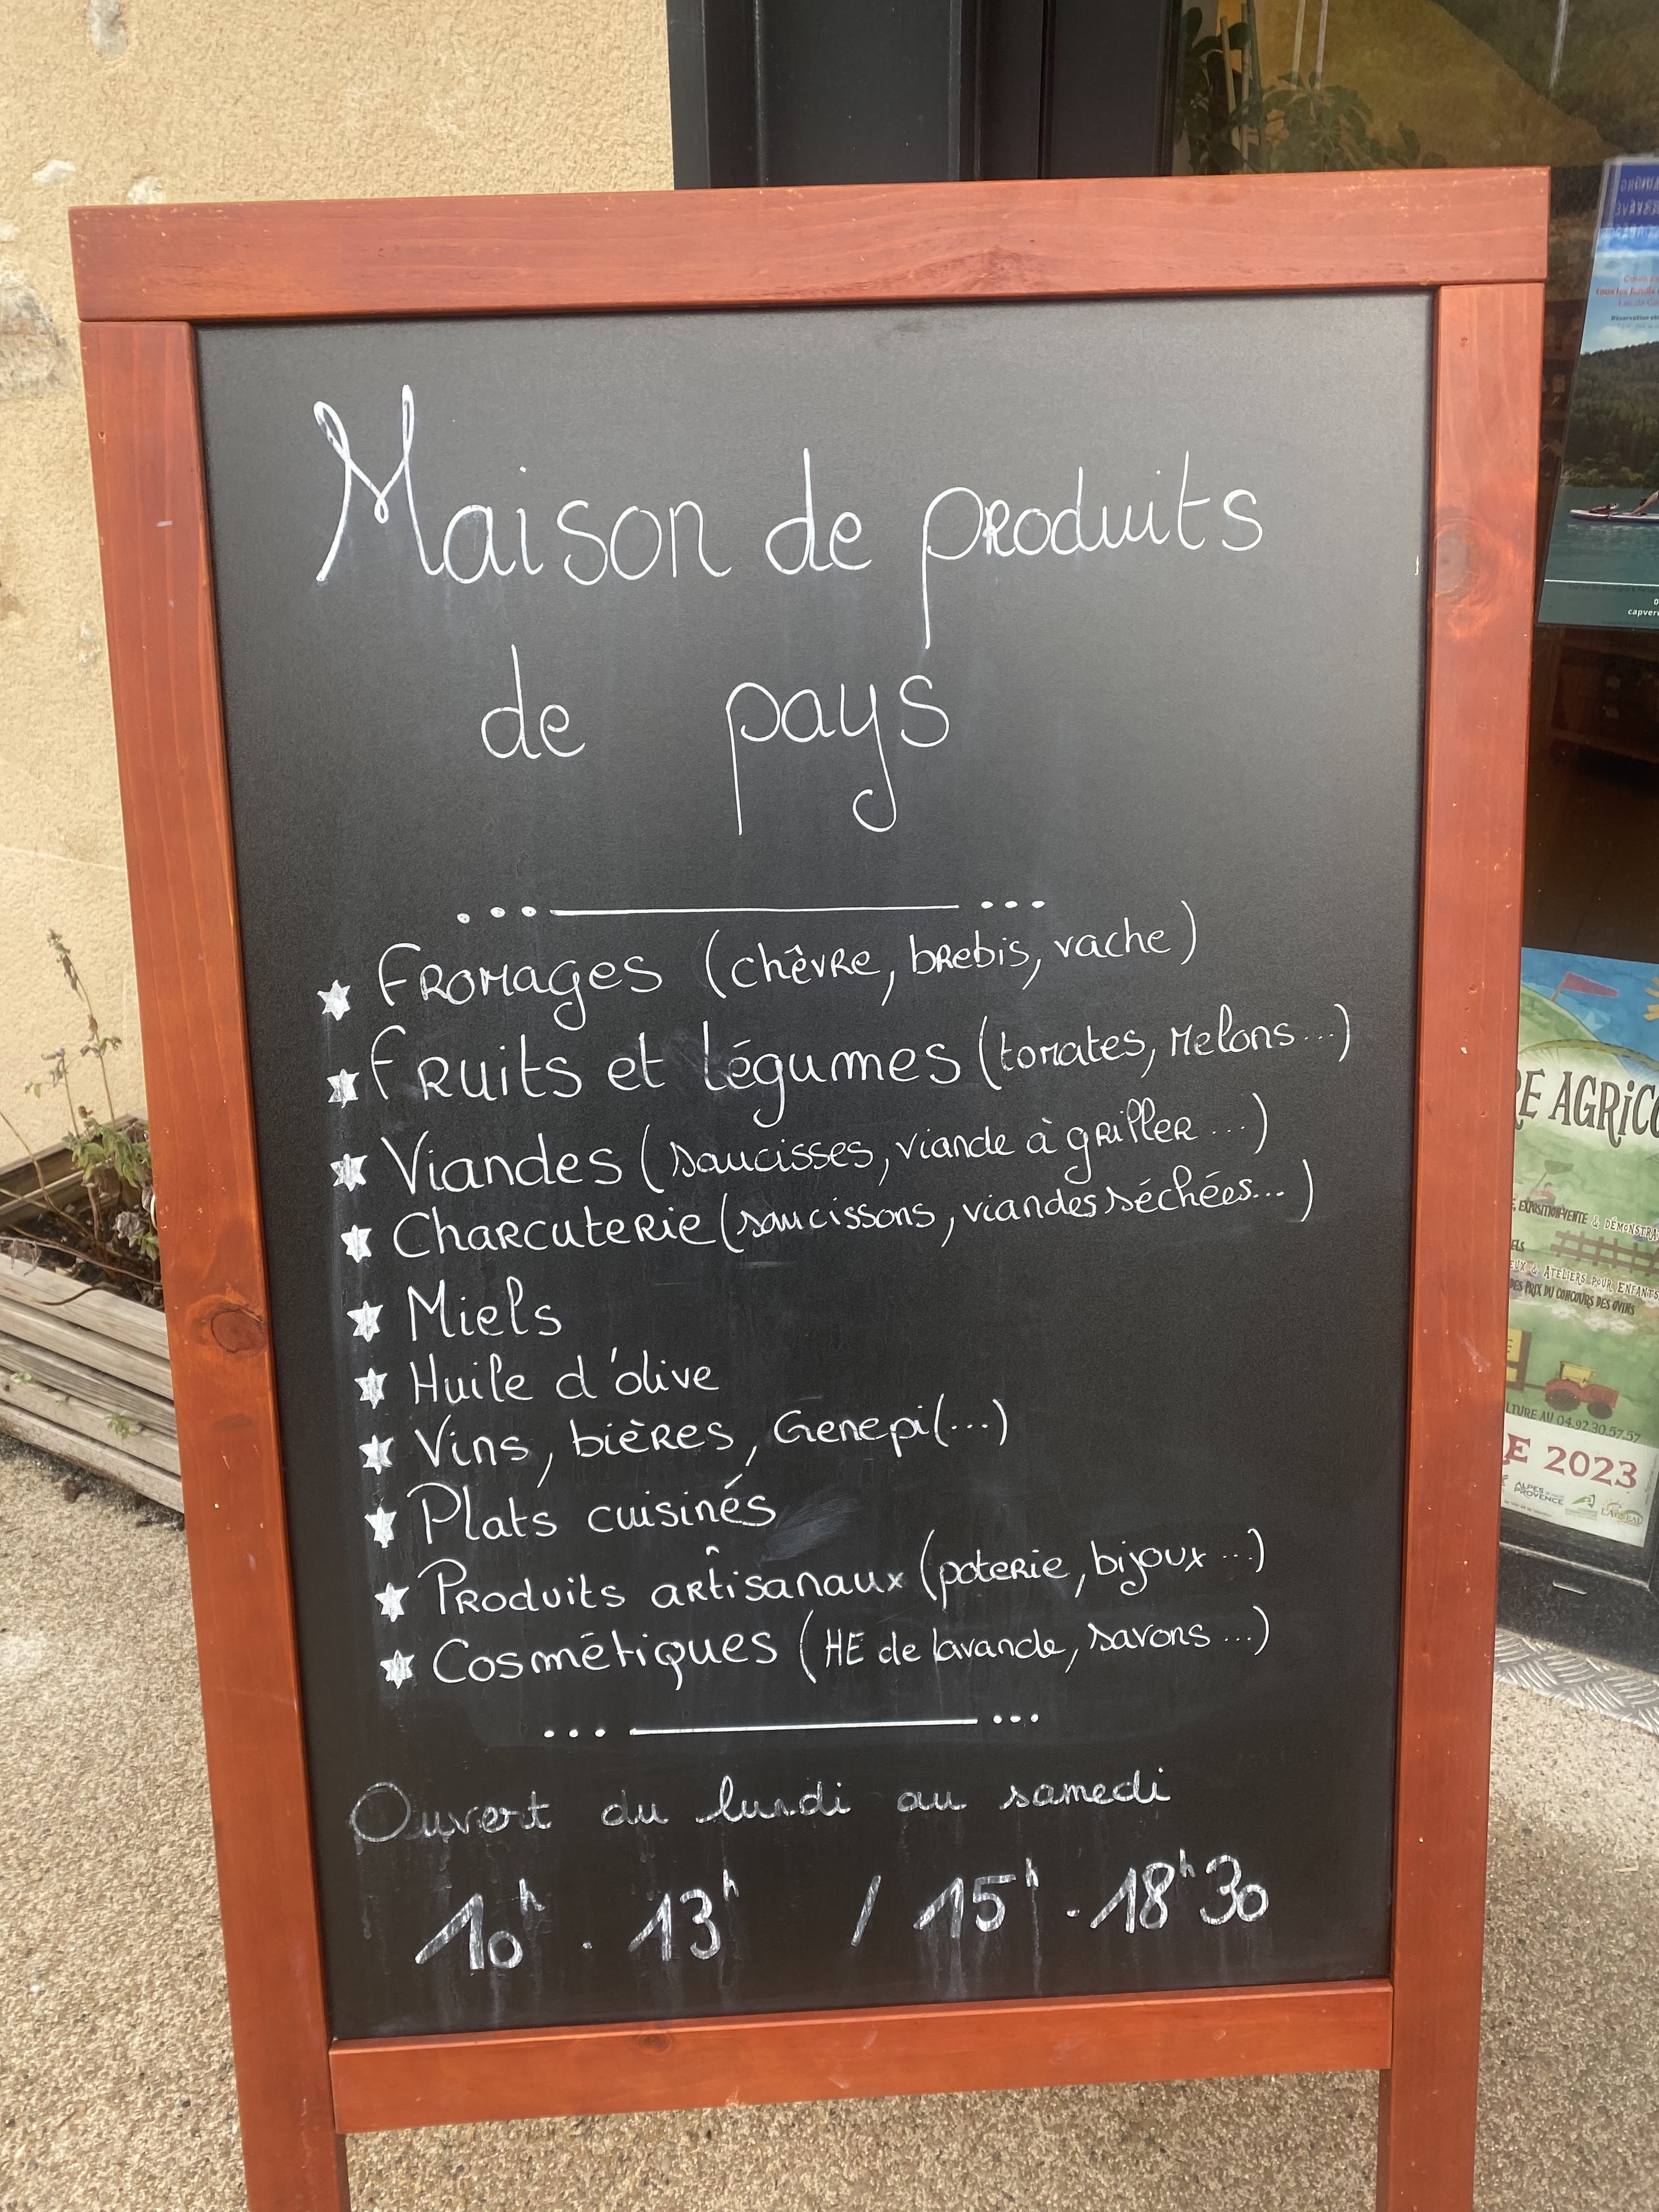 Maison de produits
de pays
Fromages (chêvre, brebis, vache)
Fruits et légumes (tomates, melons...)
Viandes (saucisses, viande à griller...)
Charcuterie (saucissons, viandes séchées...)
Miels
Huile d'olive
Vins, bières, Genepi (...)
Plats cuisinés
Produits artisanaux (poterie, bijoux...)
Cosmétiques (HE de lavande, savons...)
Ouvert du lundi au samedi
10h - 13h / 15h - 18h30
tous les lundis
capver
RE AGRICO
EXPOSITION-VENTE & DÉMONSTRA
ELS
EUX & ATELIERS POUR ENFANTS
DES PRIX DU CONCOURS DES OVINS
LTURE AU 04.92.30.57.57
E 2023
ALPES
PROVENCE